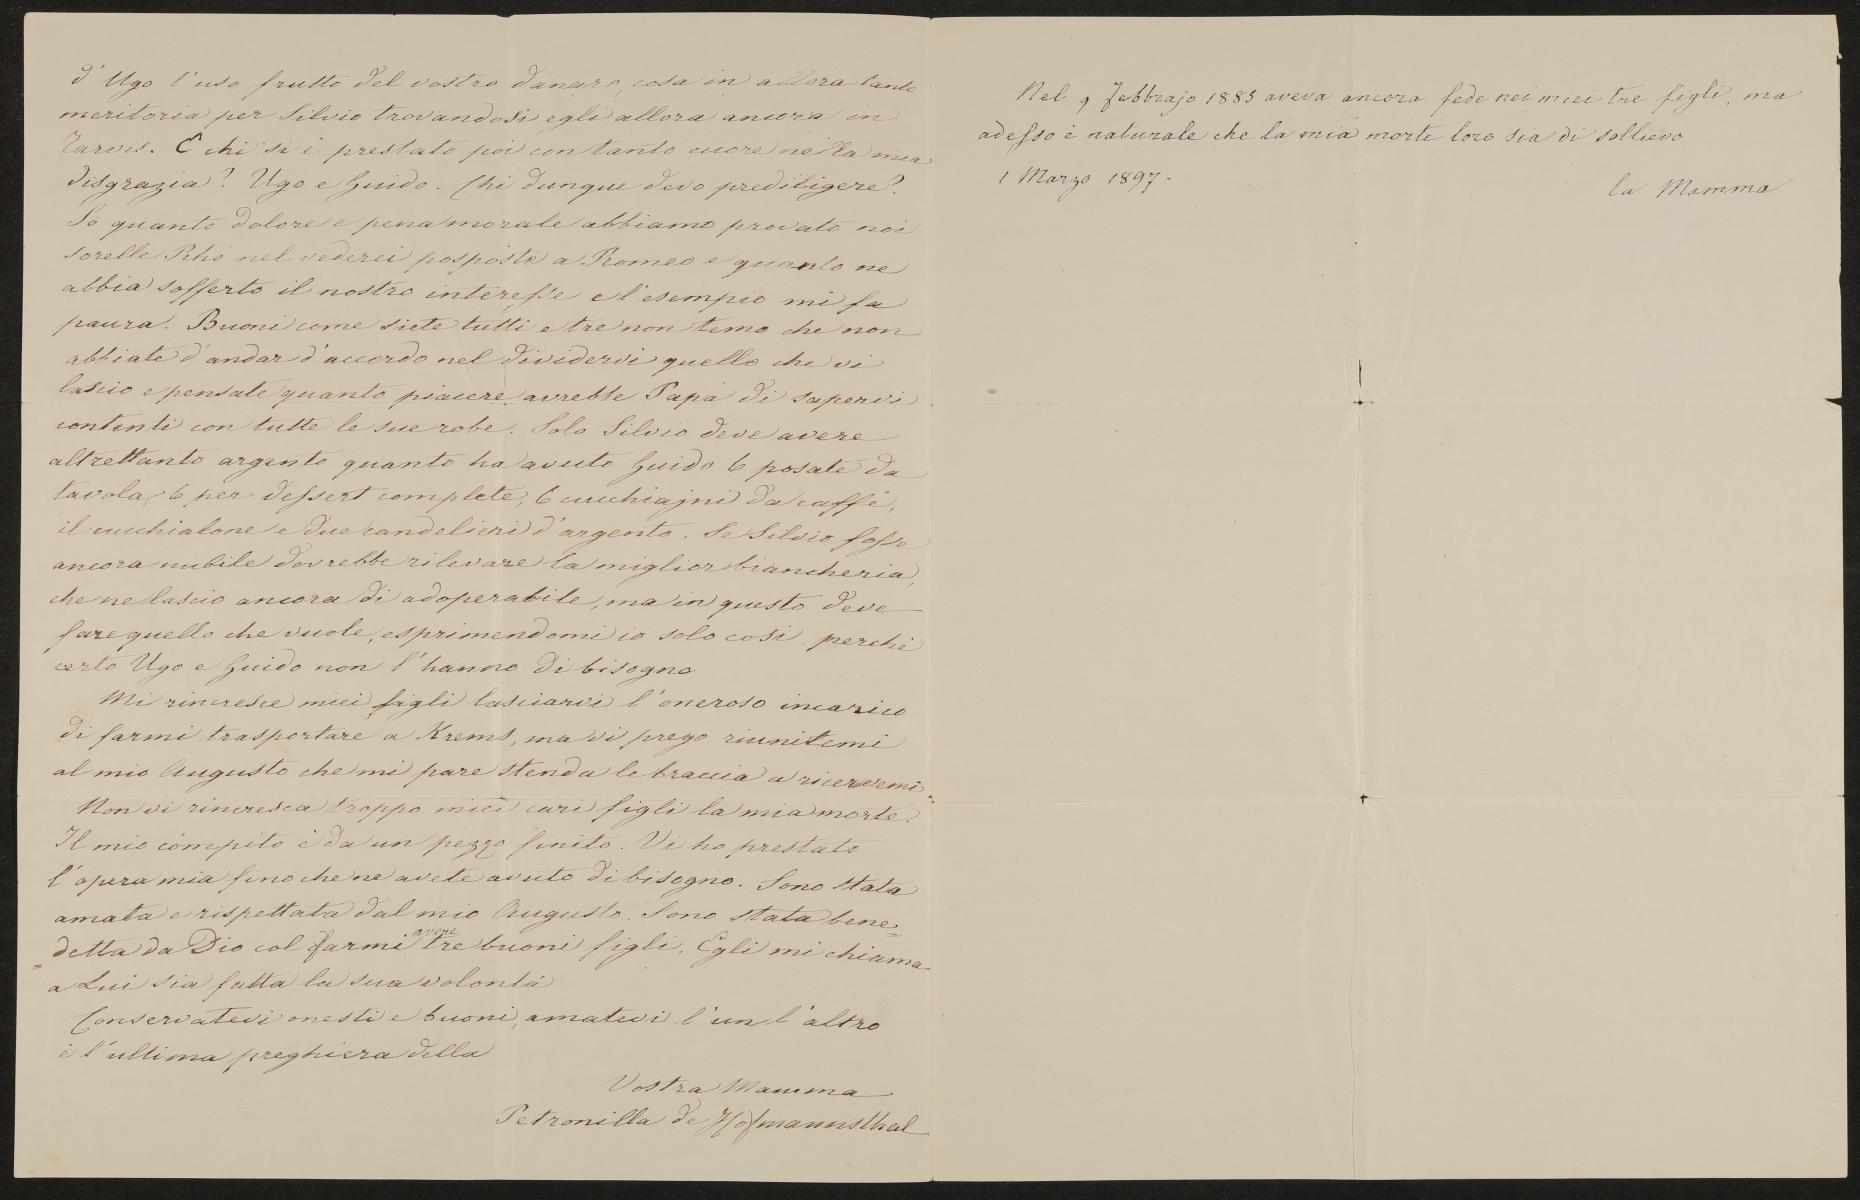 d' Ugo l'uso frutto del vostro danaro, cosa in allora tanto
meritoria per Silvio trovandosi egli allora ancora in
Tarvis. E chi si è prestato poi con tanto cuore nella mia
disgrazia? Ugo e Guido. Chi dunque devo prediligere?
So quanto dolore e pena morale abbiamo provato noi
sorelle Rhó nel vederci posposte a Romeo e quanto ne
abbia sofferto il nostro interesse e l'esempio mi fa
paura. Buoni come siete tutti e tre non temo che non
abbiate d'andar d'accordo nel dividervi quello che vi
lascio e pensate quanto piacere avrebbe Papà di sapervi
contenti con tutte le sue robe. Solo Silvio deve avere
altrettanto argento quanto ha avuto Guido 6 posate da
tavola, 6 per dessert complete, 6 cucchiajni da caffé,
il cucchialone e due candelieri d'argento. Se Silvio fosse
ancora nubile dovrebbe rilevare la miglior biancheria,
che ne lascio ancora di adoperabile, ma in questo deve
fare quello che vuole, esprimendomi io solo così perchè
certo Ugo e Guido non l'hanno di bisogno
Mi rincresce miei figli lasciarvi l'oneroso incarico
di farmi trasportare a Krems, ma vi prego riunitemi
al mio Augusto che mi pare stenda le braccia a ricevermi.
Non vi rincresca troppo miei cari figli la mia morte.
Il mio cómpito è da un pezzo finito. Vi ho prestato
l'opera mia fino che ne avete avuto di bisogno. Sono stata
amata e rispettata dal mio Augusto. Sono stata bene=
=detta da Dio col farmi avere tre buoni figli. Egli mi chiama
a Lui sia fatta la sua volontà
Conservatevi onesti e buoni, amatevi l'un l'altro
è l'ultima preghiera della
Vostra Mamma
Petronilla de Hofmannsthal
Nel 9 Febbrajo 1885 aveva ancora fede nei miei tre figli, ma
adesso è naturale che la mia morte loro sia di sollievo
1 Marzo 1897-
la Mamma